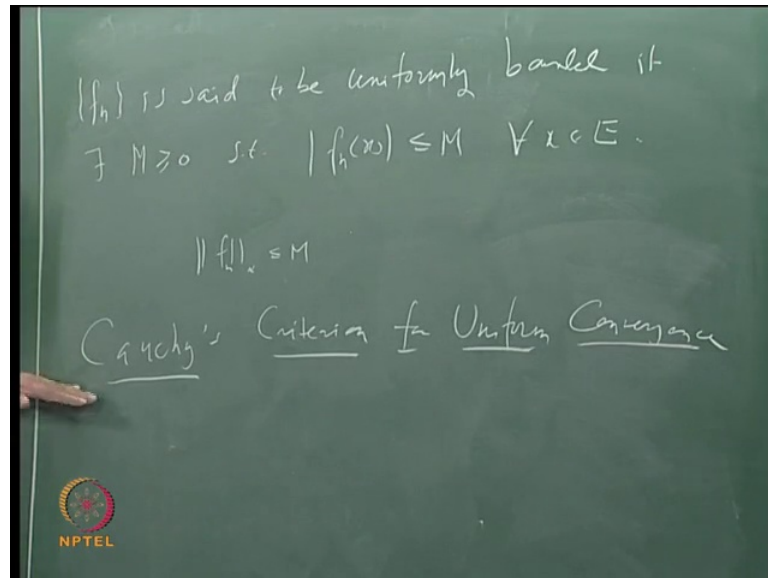 {fn} is said to be uniformly bounded if
∃ M ≥ 0 s.t. |fn(x)| ≤ M ∀ x ∈ E.
||fn||∞ ≤ M
Cauchy's Criterion for Uniform Convergence
NPTEL